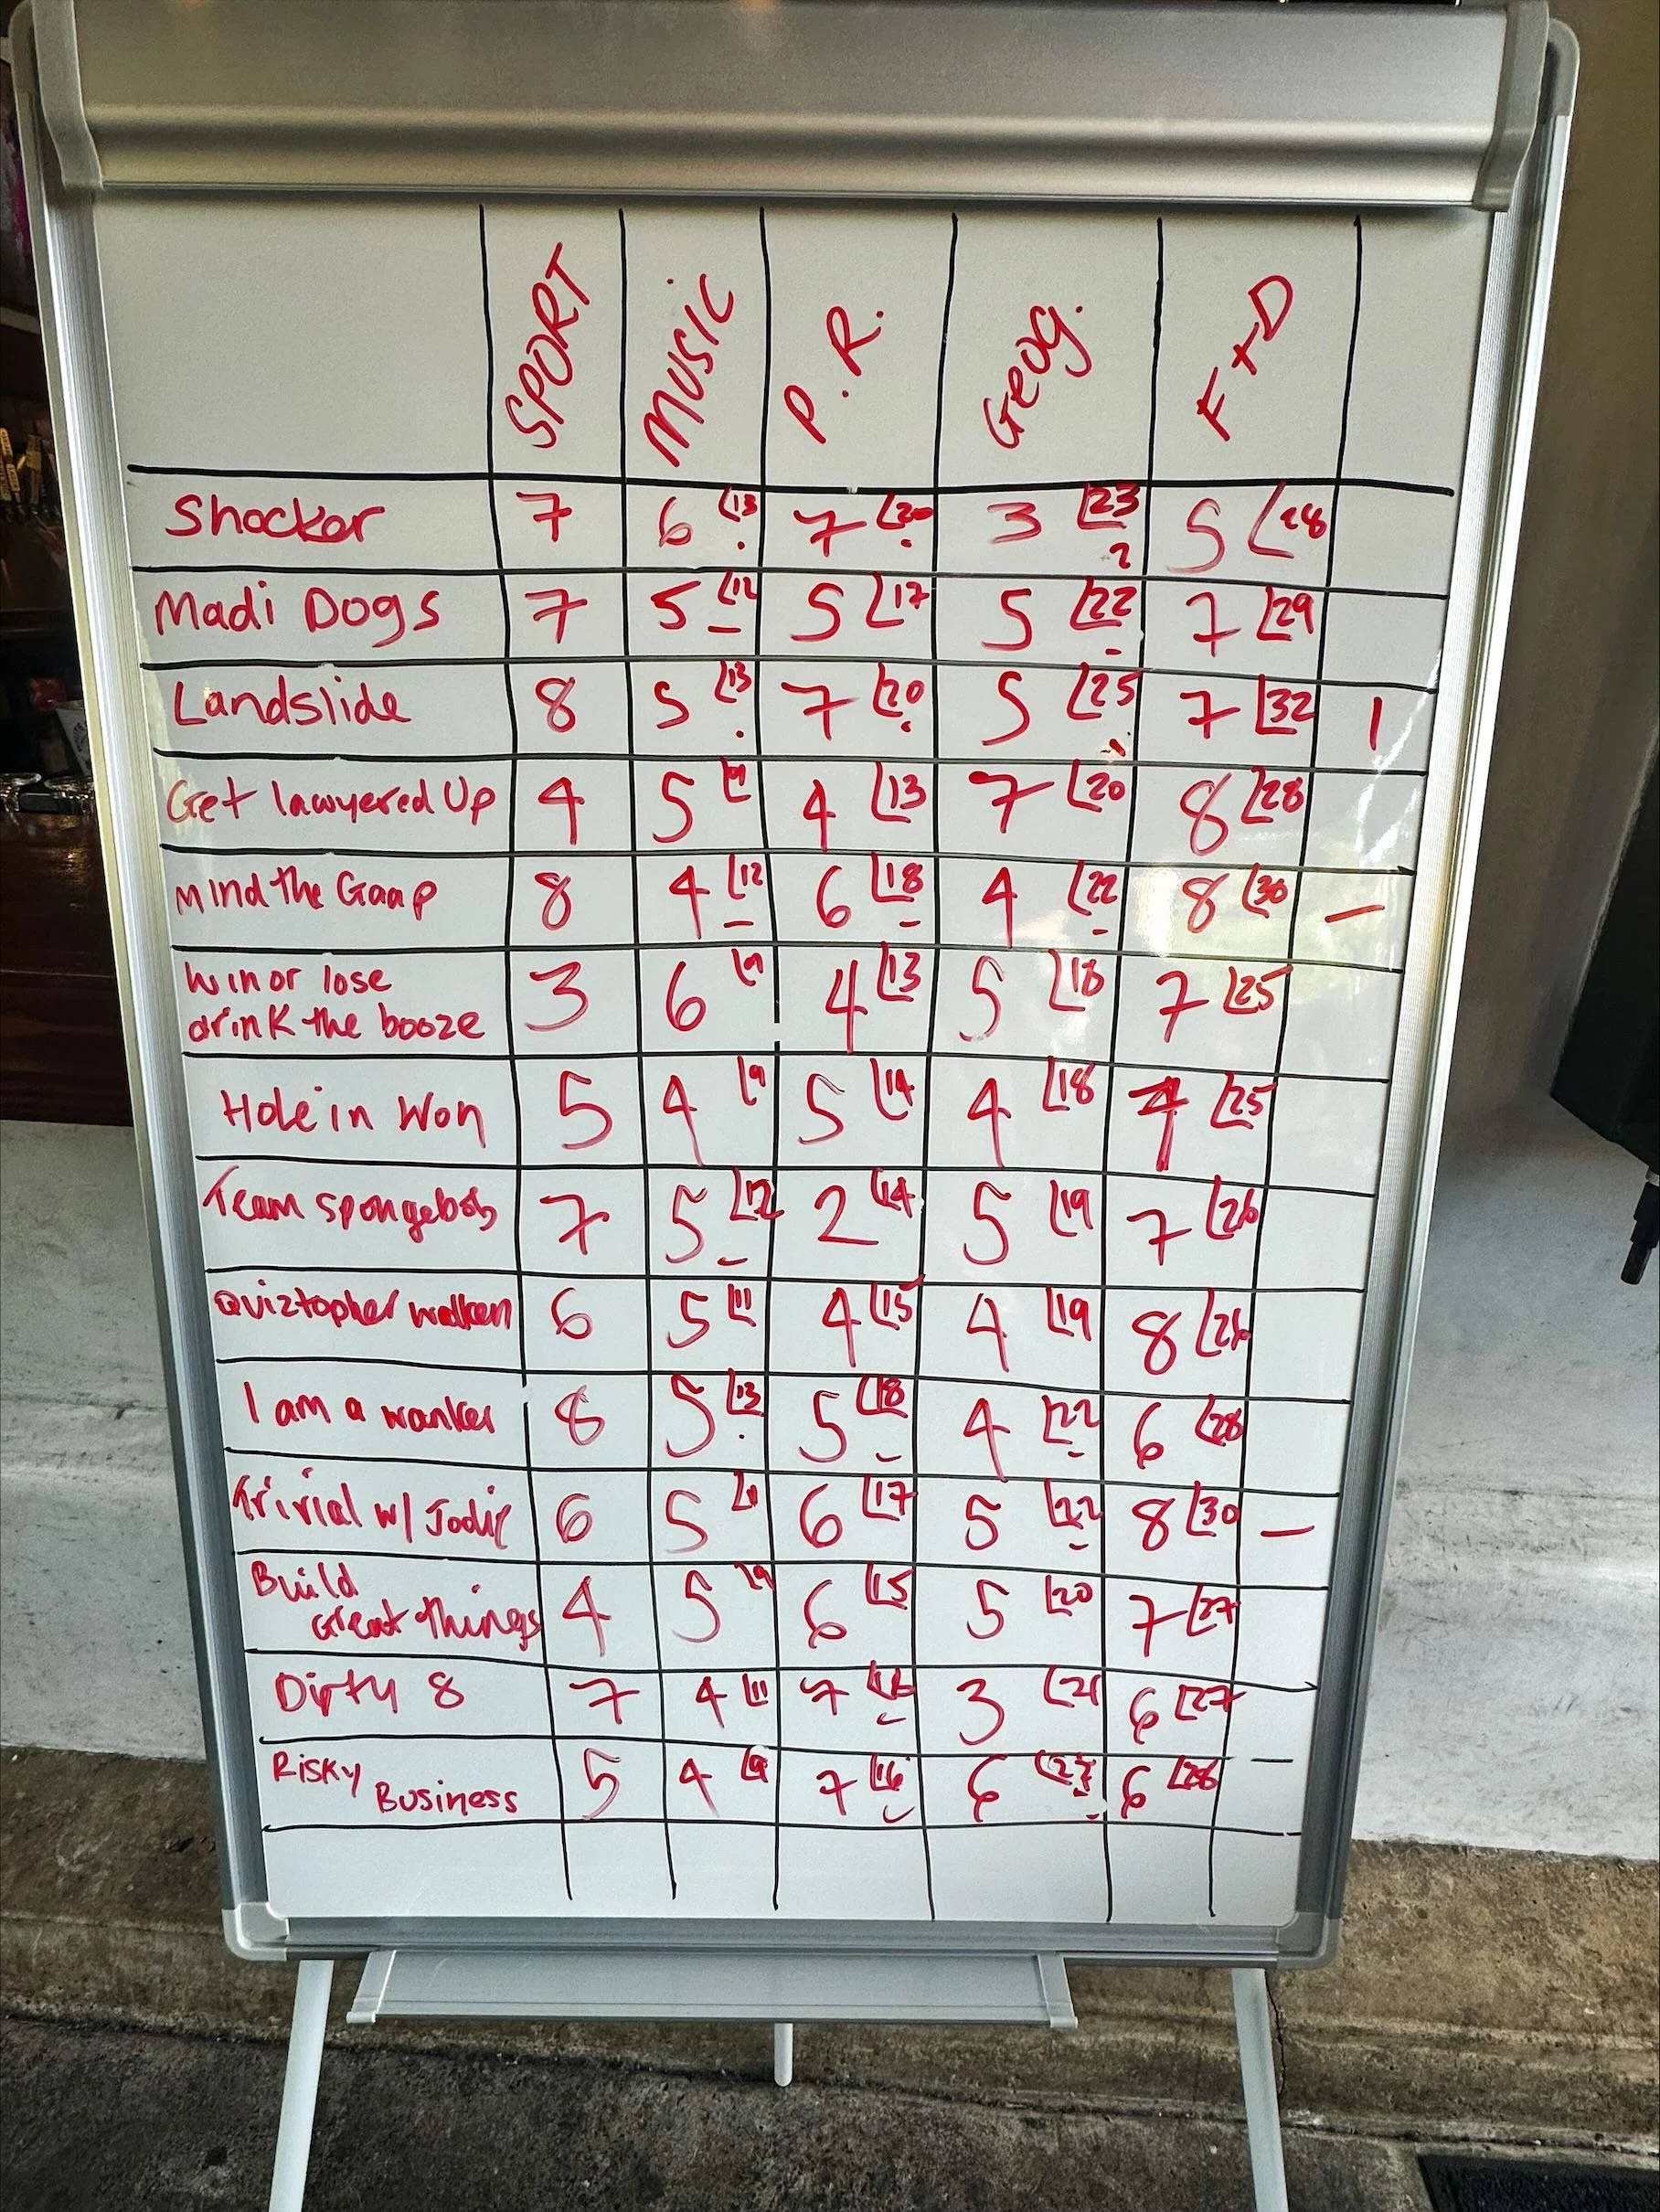 SPORT MUSIC P.R. Geog. F+D
Shocker 7 6 13 7 20 3 23 5 28
2
Madi Dogs 7 5 12 5 17 5 22 7 29
Landslide 8 5 13 7 20 5 25 7 32 1
Get lawyered Up 4 5 9 4 13 7 20 8 28
Mind the Gaap 8 4 12 6 18 4 22 8 30 —
Win or lose
drink the booze 3 6 9 4 13 5 18 7 25
Hole in Won 5 4 9 5 14 4 18 7 25
Team spongebob 7 5 12 2 14 5 19 7 26
Quiztopher walken 6 5 11 4 15 4 19 8
I am a wanker 8 5 13 5 18 4 22 6 28
Trivial w/ Jodie 6 5 11 6 17 5 22 8 30 —
Build
Great things 4 5 9 6 15 5 20 7 27
Dirty 8 7 4 11 7 3 21 6 27
Risky
Business 5 4 9 7 16 6 6 28 —